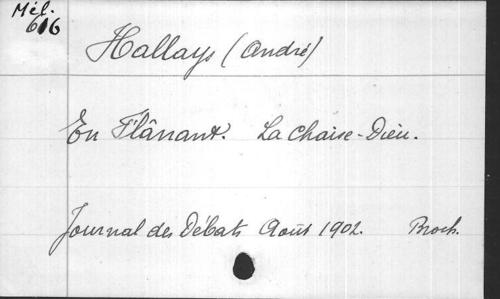 Mél.
616
Hallays (André)
En Flânant. La Chaise-Dieu.
Journal des Débats Août 1902. Broch.